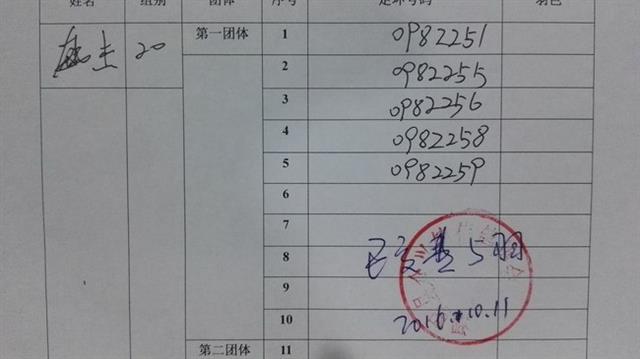 姓名 组别 团体 序号 足环号码 羽色
20 第一团体 1 0982251
2 0982255
3 0982256
4 0982258
5 0982259
6
7
8 已交 5羽
9
10 2016.10.11
第二团体 11